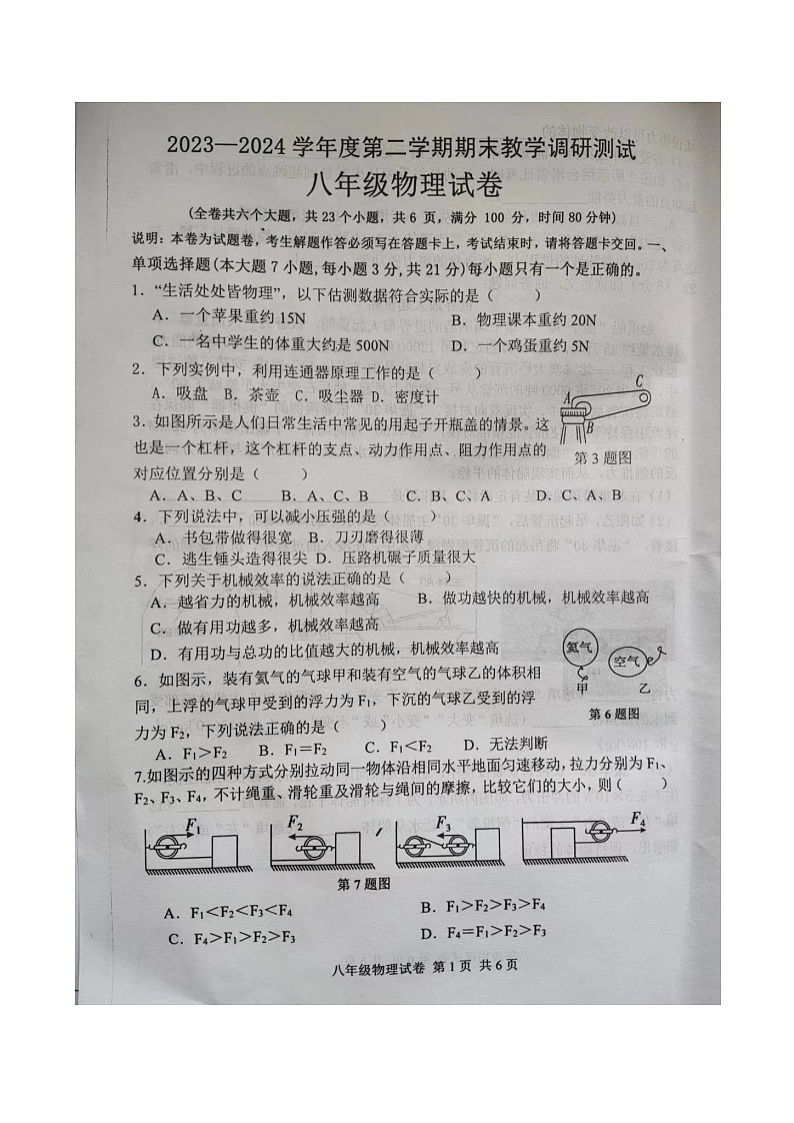 2023—2024 学年度第二学期期末教学调研测试
八年级物理试卷
(全卷共六个大题，共 23 个小题，共 6 页，满分 100 分，时间 80 分钟)
说明：本卷为试题卷，考生解题作答必须写在答题卡上，考试结束时，请将答题卡交回。一、
单项选择题(本大题 7 小题,每小题 3 分,共 21 分)每小题只有一个是正确的。
1．“生活处处皆物理”，以下估测数据符合实际的是（　　）
A．一个苹果重约 15N　　B．物理课本重约 20N
C．一名中学生的体重大约是 500N　　D．一个鸡蛋重约 5N
2．下列实例中，利用连通器原理工作的是（　　）
A．吸盘 B．茶壶 C．吸尘器 D．密度计
3．如图所示是人们日常生活中常见的用起子开瓶盖的情景。这
也是一个杠杆，这个杠杆的支点、动力作用点、阻力作用点的
对应位置分别是（　　）
A
B
C
第 3 题图
A．A、B、C　　B．A、C、B　　C．B、C、A　　D．C、A、B
4．下列说法中，可以减小压强的是（　　）
A．书包带做得很宽 B．刀刃磨得很薄
C．逃生锤头造得很尖 D．压路机碾子质量很大
5．下列关于机械效率的说法正确的是（　　）
A．越省力的机械，机械效率越高　　B．做功越快的机械，机械效率越高
C．做有用功越多，机械效率越高
D．有用功与总功的比值越大的机械，机械效率越高
6．如图示，装有氦气的气球甲和装有空气的气球乙的体积相
同，上浮的气球甲受到的浮力为 F₁，下沉的气球乙受到的浮
力为 F₂，下列说法正确的是（　　）
氦气
空气
甲
乙
第 6 题图
A．F₁＞F₂　　B．F₁＝F₂　　C．F₁＜F₂　　D．无法判断
7.如图示的四种方式分别拉动同一物体沿相同水平地面匀速移动，拉力分别为 F₁、
F₂、F₃、F₄，不计绳重、滑轮重及滑轮与绳间的摩擦，比较它们的大小，则（　　）
F₁　　F₂　　F₃　　F₄
第 7 题图
A．F₁＜F₂＜F₃＜F₄　　B．F₁＞F₂＞F₃＞F₄
C．F₄＞F₁＞F₂＞F₃　　D．F₄＝F₁＞F₂＞F₃
八年级物理试卷 第 1 页 共 6 页